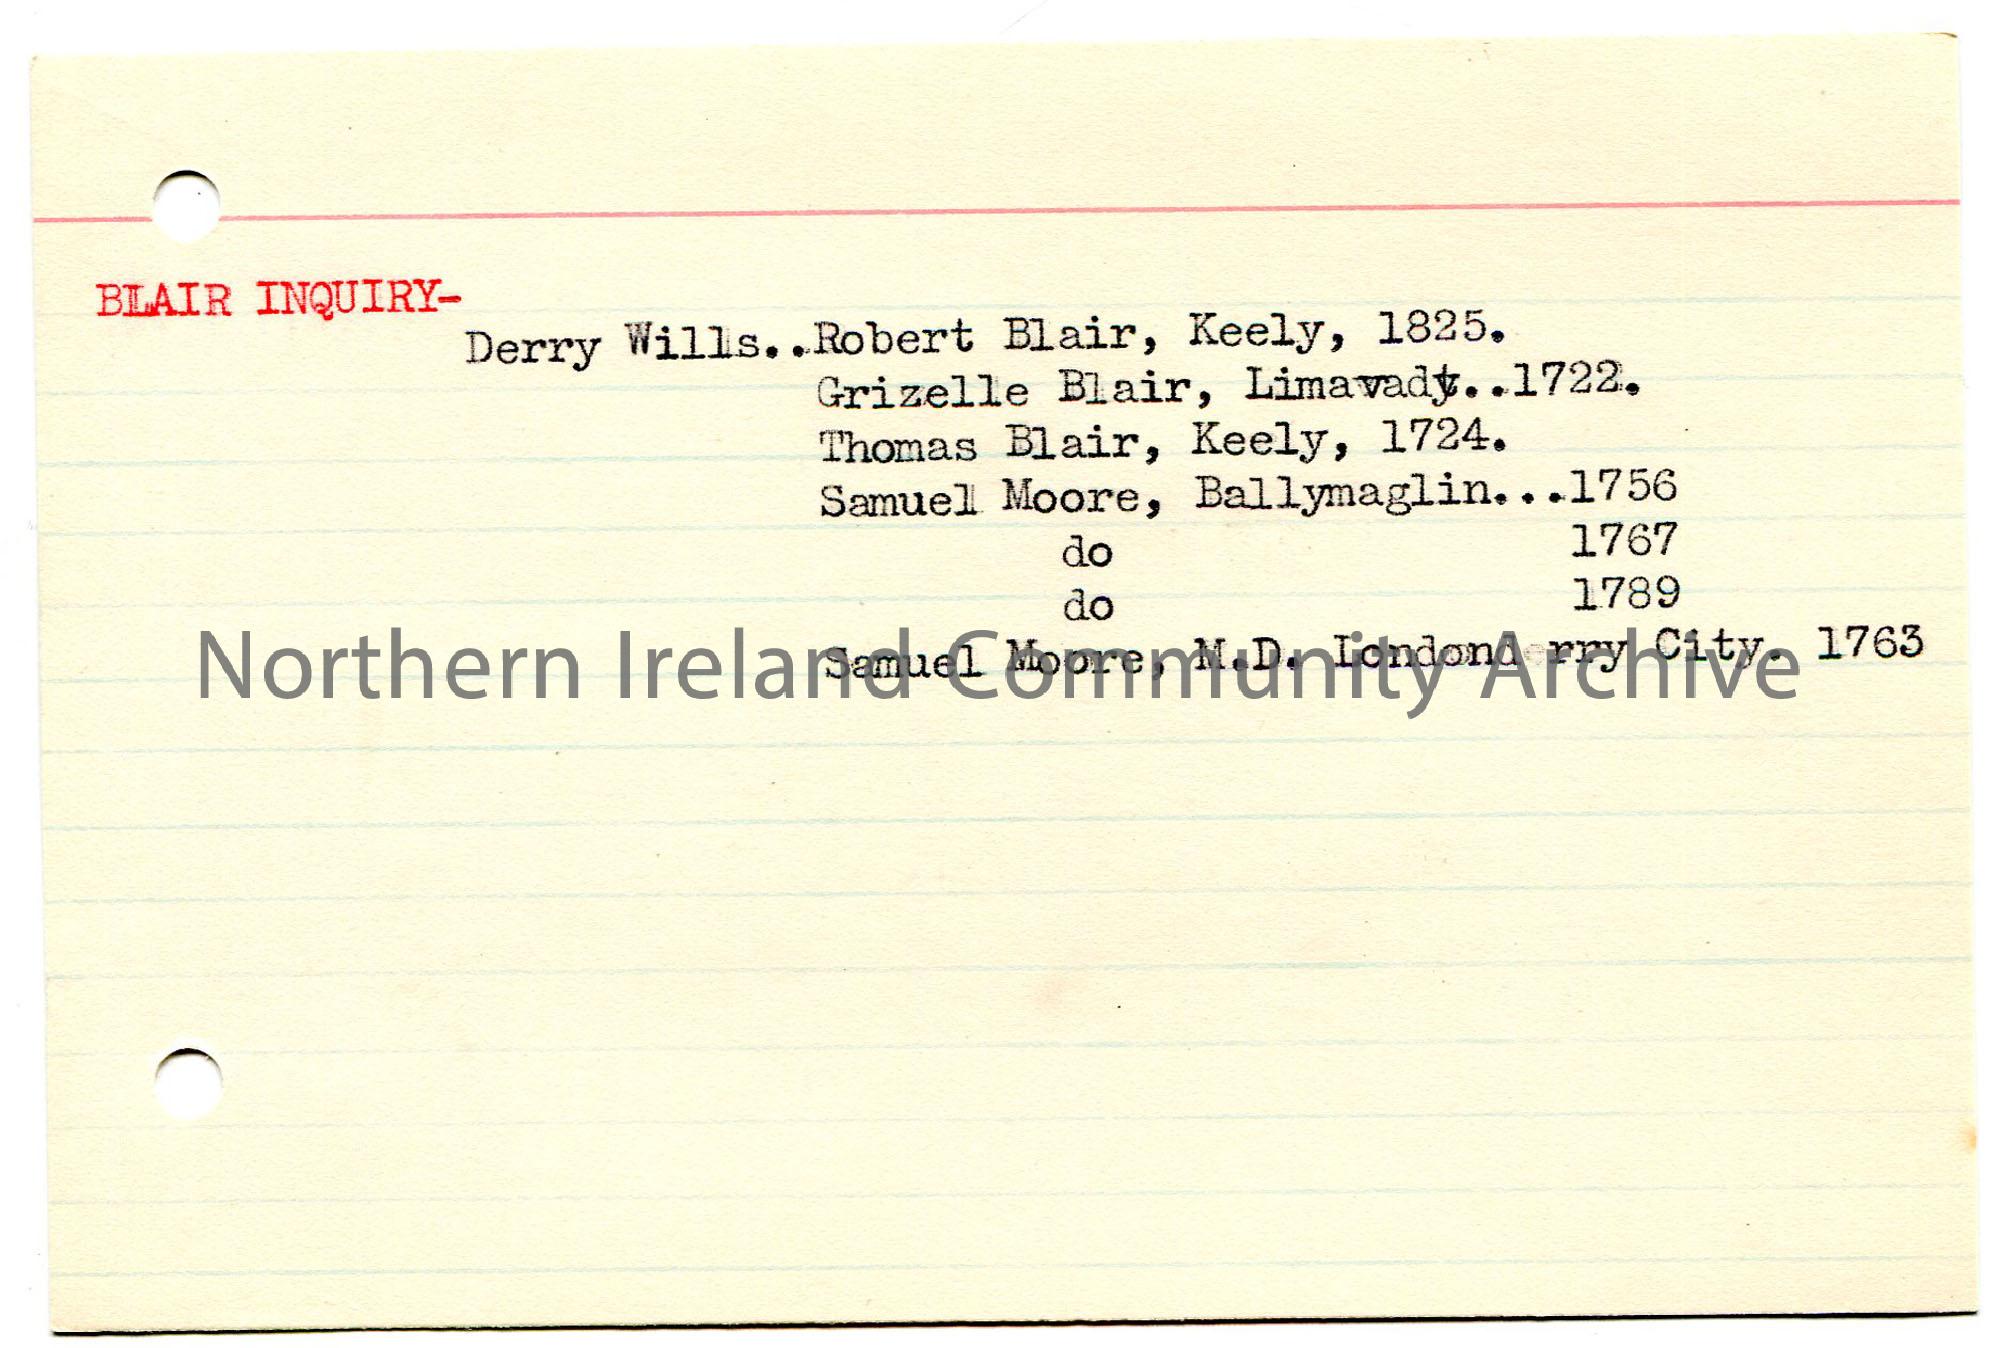 BLAIR INQUIRY-
Derry Wills..Robert Blair, Keely, 1825.
Grizelle Blair, Limavady..1722.
Thomas Blair, Keely, 1724.
Samuel Moore, Ballymaglin...1756
do 1767
do 1789
Samuel Moore, M.D. Londonderry City. 1763
Northern Ireland Community Archive